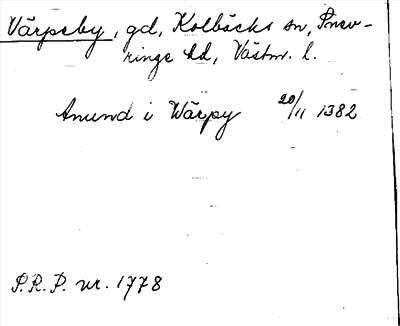 Värpeby, gd, Kolbäcks sn, Snev-
ringe hd, Västm. l.
Anund i Wärpy 20/11 1382
S.R.P. nr. 1778